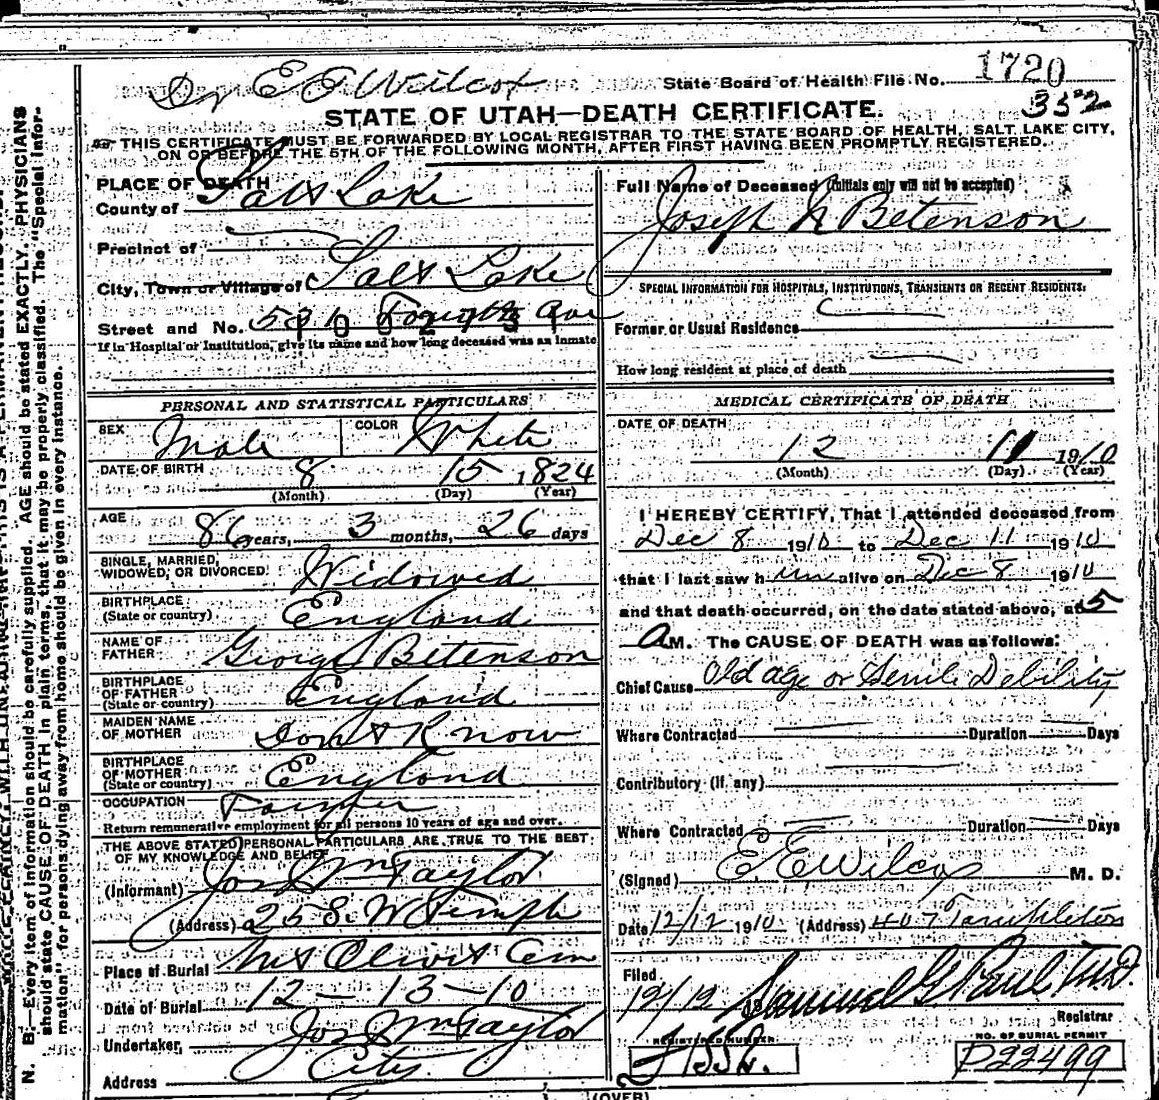 Dr E E Wilcox
State Board of Health File No. 1720
352
STATE OF UTAH—DEATH CERTIFICATE.
THIS CERTIFICATE MUST BE FORWARDED BY LOCAL REGISTRAR TO THE STATE BOARD OF HEALTH, SALT LAKE CITY,
ON OR BEFORE THE 5TH OF THE FOLLOWING MONTH, AFTER FIRST HAVING BEEN PROMPTLY REGISTERED.
PLACE OF DEATH
County of Salt Lake
Precinct of
City, Town or Village of Salt Lake
Street and No.
If in Hospital or Institution, give its name and how long deceased was an inmate
Full Name of Deceased (Initials only will not be accepted)
Joseph Betenson
SPECIAL INFORMATION FOR HOSPITALS, INSTITUTIONS, TRANSIENTS OR RECENT RESIDENTS:
Former or Usual Residence
How long resident at place of death
PERSONAL AND STATISTICAL PARTICULARS
SEX Male COLOR White
DATE OF BIRTH 8 15 1824
(Month) (Day) (Year)
AGE 86 years, 3 months, 26 days
SINGLE, MARRIED,
WIDOWED, OR DIVORCED: Widowed
BIRTHPLACE
(State or country) England
NAME OF
FATHER George Betenson
BIRTHPLACE
OF FATHER
(State or country) England
MAIDEN NAME
OF MOTHER Dont Know
BIRTHPLACE
OF MOTHER
(State or country) England
OCCUPATION Farmer
Return remunerative employment for all persons 10 years of age and over.
THE ABOVE STATED PERSONAL PARTICULARS ARE TRUE TO THE BEST
OF MY KNOWLEDGE AND BELIEF
(Informant) Jos Wm Taylor
(Address) 25 S. W Temple
Place of Burial Mt Olivet Cem
Date of Burial 12-13-10
Undertaker, Jos Wm Taylor
Address City
MEDICAL CERTIFICATE OF DEATH
DATE OF DEATH
12 11 1910
(Month) (Day) (Year)
I HEREBY CERTIFY, That I attended deceased from
Dec 8 1910 to Dec 11 1910
that I last saw him alive on Dec 8 1910
and that death occurred, on the date stated above, at 5
A M. The CAUSE OF DEATH was as follows:
Chief Cause Old age or Senile Debility
Where Contracted Duration Days
Contributory (if any)
Where Contracted Duration Days
(Signed) E E Wilcox M. D.
Date 12/12 1910 (Address) 407 Templeton
Filed
12/12 19 Samuel G Paul M.D.
Registrar
REGISTERED NUMBER
NO. OF BURIAL PERMIT
P22499
(OVER)
N. B.—Every item of information should be carefully supplied. AGE should be stated EXACTLY. PHYSICIANS
should state CAUSE OF DEATH in plain terms, that it may be properly classified. The "Special Infor-
mation" for persons dying away from home should be given in every instance.